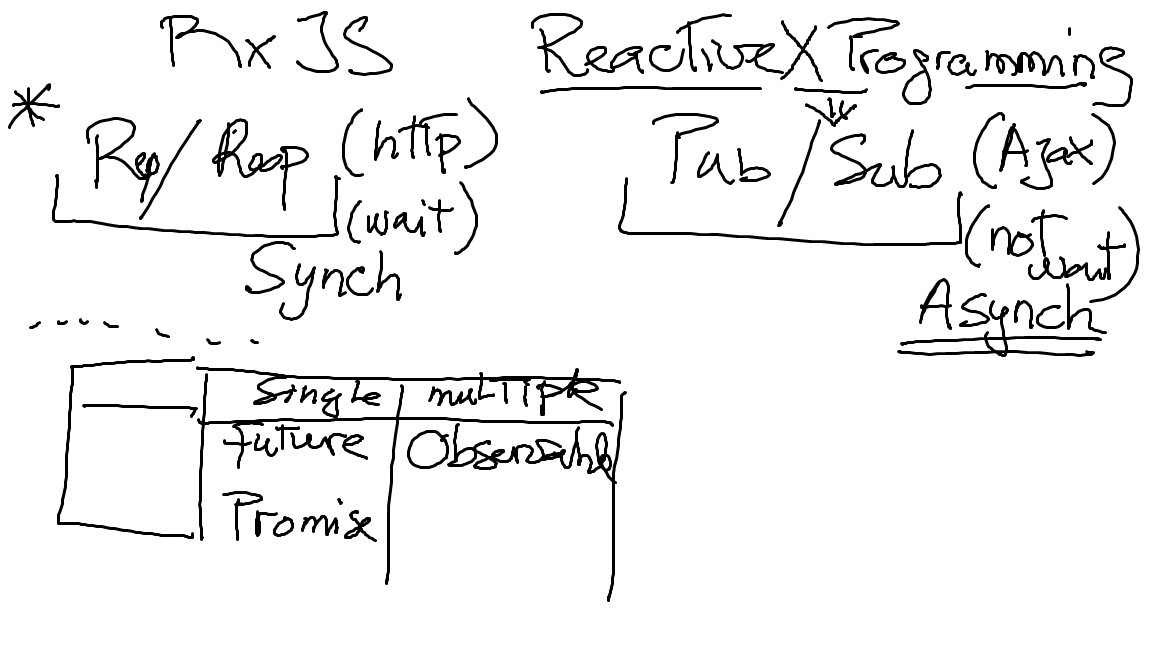 RxJS ReactiveX Programming
* Req/Resp (http) Pub/Sub (Ajax)
(wait) (not wait)
Synch Asynch
Single multiple
Future Observable
Promise